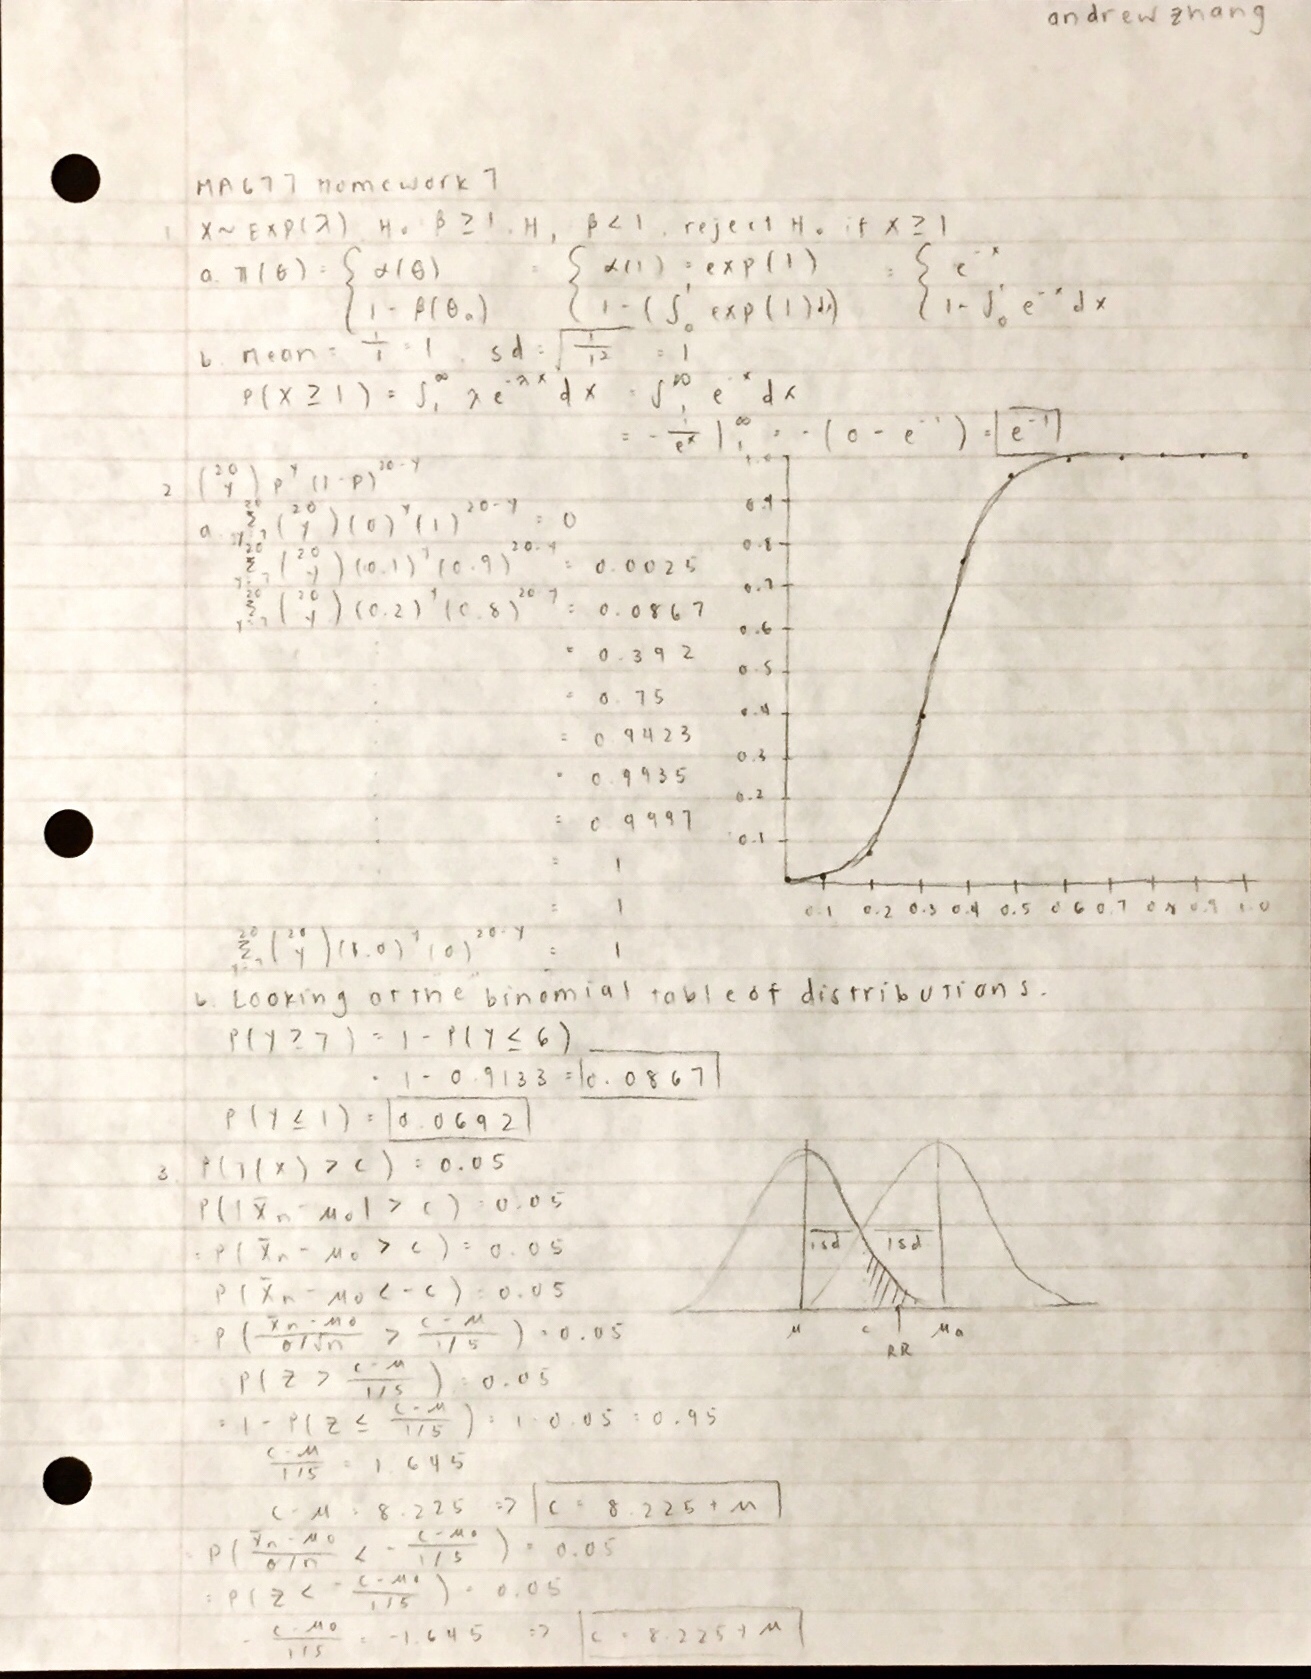 andrew zhang
MA677 Homework 7
1. X~EXP(λ) H₀ β ≥ 1. H, β < 1. reject H₀ if X ≥ 1
a. π(θ) = { α(θ) = { α(1) = exp(1) = { e^-x
1 - β(θ₀) 1 - (∫₀¹ exp(1)dx) 1 - ∫₀¹ e^-x dx
b. mean = 1/1 = 1. sd = √(1/1²) = 1
P(X ≥ 1) = ∫₁^∞ λe^-λx dx = ∫₁^∞ e^-x dx
= -1/e^x |₁^∞ = -(0 - e^-1) = e^-1
2. (20 y) p^y (1-p)^20-y
a. Σ_y=7^20 (20 y)(0)^y(1)^20-y = 0
Σ_y=7^20 (20 y)(0.1)^y(0.9)^20-y = 0.0025
Σ_y=7^20 (20 y)(0.2)^y(0.8)^20-y = 0.0867
= 0.392
= 0.75
= 0.9423
= 0.9935
= 0.9997
= 1
= 1
Σ_y=7^20 (20 y)(1.0)^y(0)^20-y = 1
1.0
0.9
0.8
0.7
0.6
0.5
0.4
0.3
0.2
0.1
0.1 0.2 0.3 0.4 0.5 0.6 0.7 0.8 0.9 1.0
b. Looking at the binomial table of distributions.
P(Y ≥ 7) = 1 - P(Y ≤ 6)
= 1 - 0.9133 = 0.0867
P(Y ≤ 1) = 0.0692
3. P(T(X) > c) = 0.05
P(|X̄n - μ₀| > c) = 0.05
= P(X̄n - μ₀ > c) = 0.05
P(X̄n - μ₀ < -c) = 0.05
= P((X̄n - μ₀)/(σ/√n) > (c - μ)/(1/5)) = 0.05
P(Z > (c - μ)/(1/5)) = 0.05
= 1 - P(Z ≤ (c - μ)/(1/5)) = 1 - 0.05 = 0.95
(c - μ)/(1/5) = 1.645
c - μ = 8.225 => c = 8.225 + μ
= P((X̄n - μ₀)/(σ/n) < -(c - μ₀)/(1/5)) = 0.05
= P(Z < -(c - μ₀)/(1/5)) = 0.05
-(c - μ₀)/(1/5) = -1.645 => c = 8.225 + μ
1sd 1sd
μ c μ₀
RR